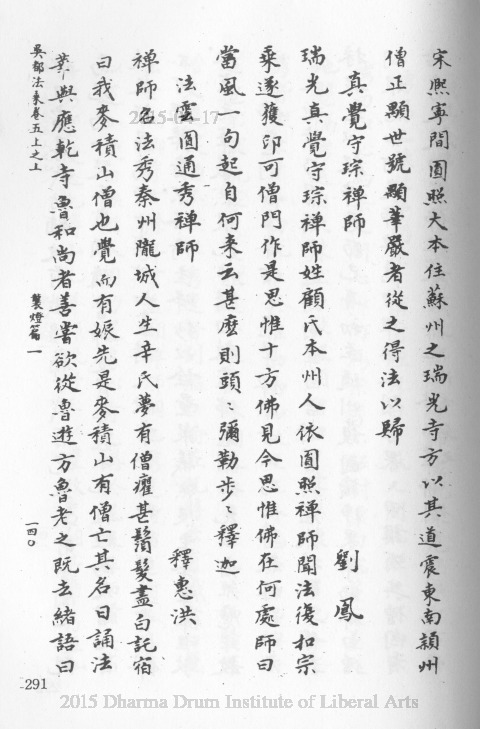 宋熈寧間圓照大本住蘇州之瑞光寺方以其道震東南頴州
僧正顒世號顒華嚴者從之得法以歸
真覺守琮禪師
劉鳳
瑞光真覺守琮禪師姓顧氏本州人依圓照禪師聞法復扣宗
乘遂獲印可僧門作是思惟十方佛見今思惟佛在何處師曰
當風一句起自何来云甚麽則頭〻彌勒步〻釋迦
法雲圓通秀禪師
釋惠洪
禪師名法秀秦州隴城人生辛氏夢有僧癯甚鬚髮盡白託宿
曰我麥積山僧也覺而有娠先是麥積山有僧亡其名日誦法
華與應乾寺魯和尚者善嘗欲從魯遊方魯老之既去緒語曰
吳都法乘卷五上之上
襲燈篇一
一四〇
291
2015-04-17
2015 Dharma Drum Institute of Liberal Arts